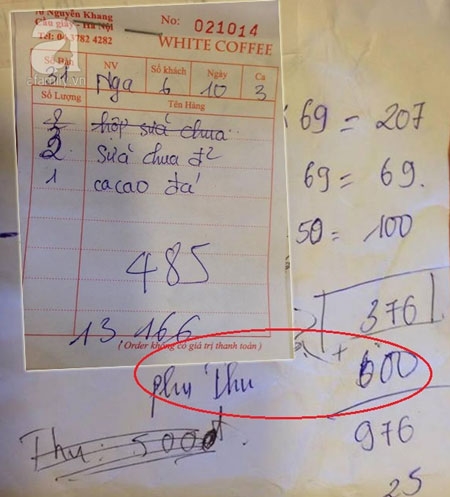 No: 021014
70 Nguyễn Khang
Cầu giấy - Hà Nội
Tel: 04 3782 4282
WHITE COFFEE
NV Số khách Ngày Ca
31 Nga 6 10 3
Số Lượng Tên Hàng
hộp sữa chua
2 Sữa chua
1 cacao đá
485
13 166
( Order không có giá trị thanh toán )
69 = 207
69 = 69.
50 = 100
376
+ 600
phụ thu
976
Thu: 500đ
25